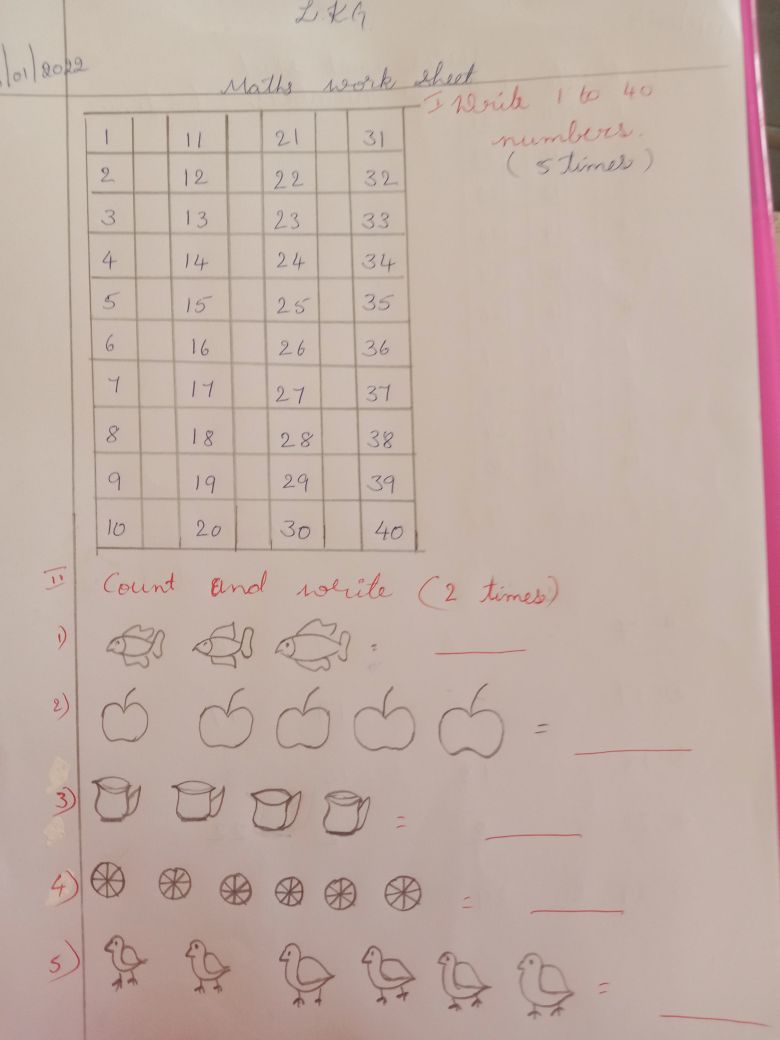 L.K.G
/01/2022
Maths work sheet
I Write 1 to 40
numbers.
(5 times)
1 11 21 31
2 12 22 32
3 13 23 33
4 14 24 34
5 15 25 35
6 16 26 36
7 17 27 37
8 18 28 38
9 19 29 39
10 20 30 40
II Count and write (2 times)
1) =
2) =
3) =
4) =
5) =